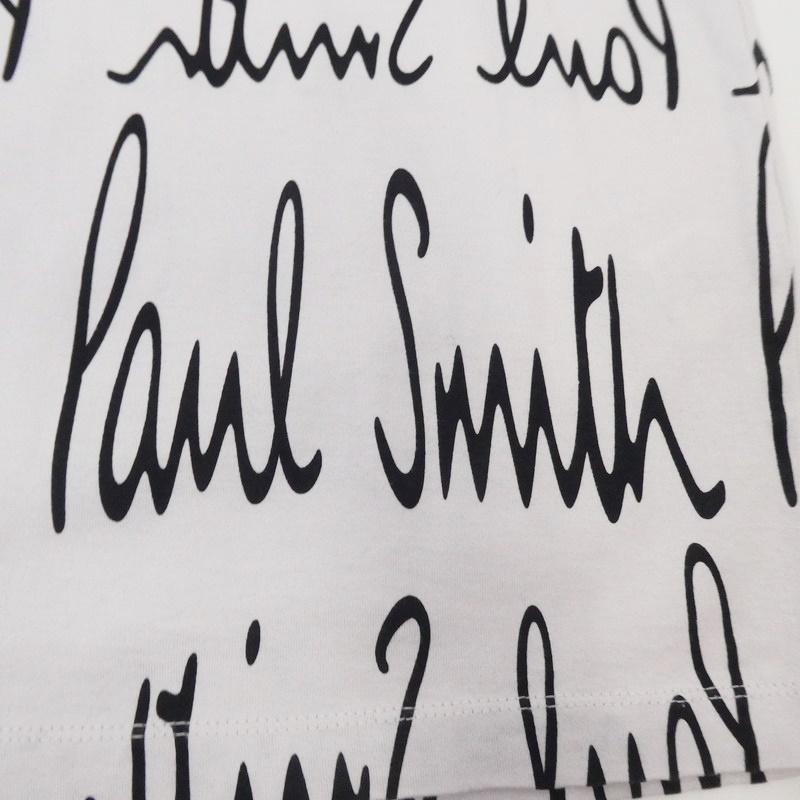 Paul Smith
Paul Smith
Paul Smith